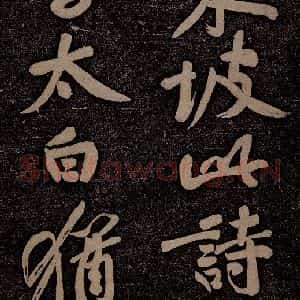 東坡此詩
太白猶
Shufawang.CN